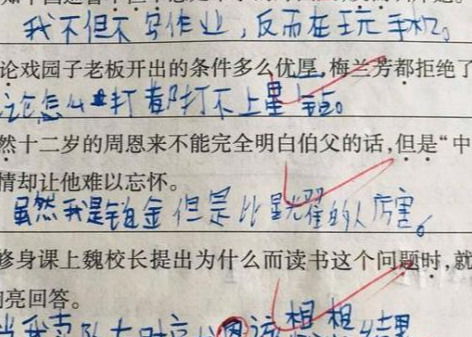 我不但不写作业,反而在玩手机。
论戏园子老板开出的条件多么优厚,梅兰芳都拒绝了
论怎么打都打不上星耀。
然十二岁的周恩来不能完全明白伯父的话,但是“中
情却让他难以忘怀。
虽然我是铂金但是比星耀的人厉害。
修身课上魏校长提出为什么而读书这个问题时,就
响亮回答。
想想结果